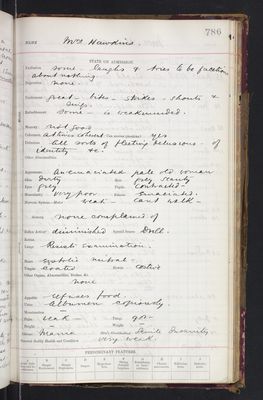 786
NAME Mrs Hawkins.
STATE ON ADMISSION.
some. laughs & tries to be facetious
about nothing.
none.
Excitement great - bites - strikes - shouts &
sings.
Enfeeblement some - is weakminded.
Memory not good
Coherence at times coherent Can answer questions? yes
Delusions all sorts of fleeting delusions of
identity &c.
Other Abnormalities
Appearance An emaciated pale old woman
Hair grey scanty
Eyes grey Pupils Contracted
very poor Emaciated.
Nervous System - Motor weak - can't walk -
Sensory none complained of
Reflex Action diminished Special Senses Dull.
Lungs Resists examination.
Heart systolic mitral -
Tongue coated Bowels costive
Other Organs, Abnormalities, Bruises, &c.
none
Appetite refuses food.
Urine Albumen copiously.
Menstruation
Pulse weak - Temp. 97
Weight Height
Mania Senile Insanity
General Bodily Health and Condition very weak.
PREDOMINANT FEATURES.